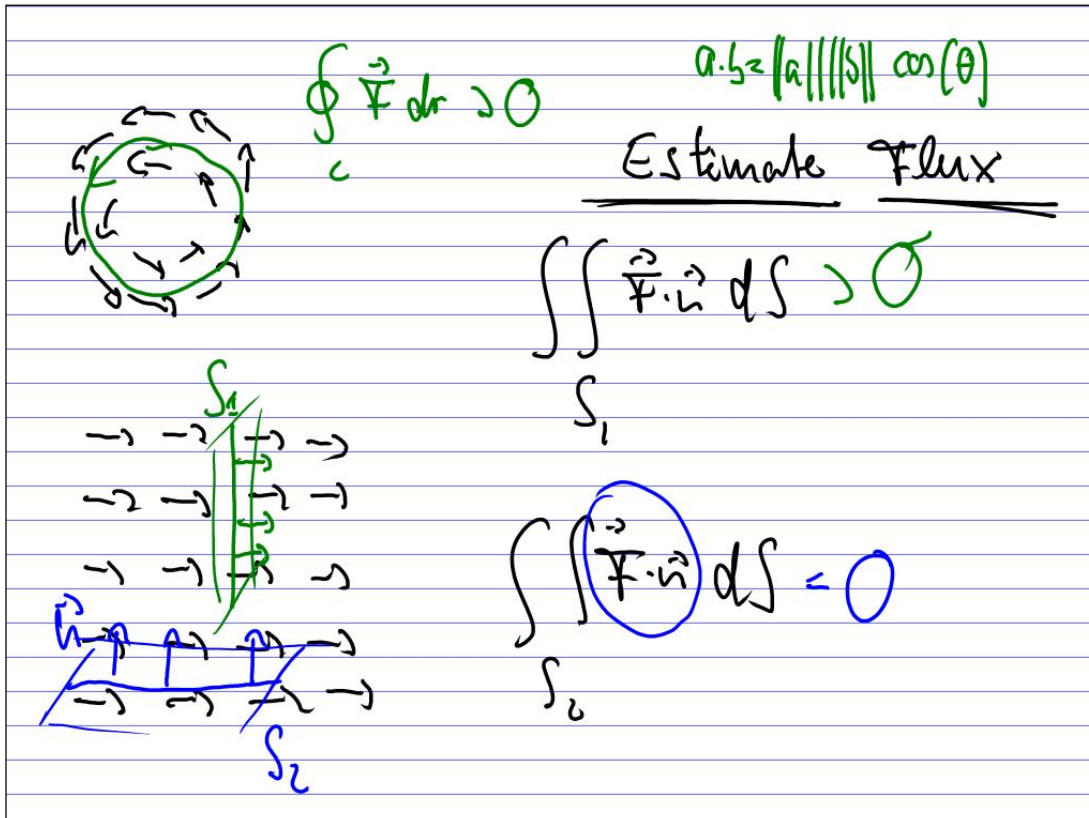 ∮ F⃗ dr > 0
c
a·b = ||a|| ||b|| cos(θ)
Estimate Flux
∬ F⃗·n⃗ dS > 0
S₁
S₁
∬ F⃗·n⃗ dS = 0
S₂
n⃗
S₂